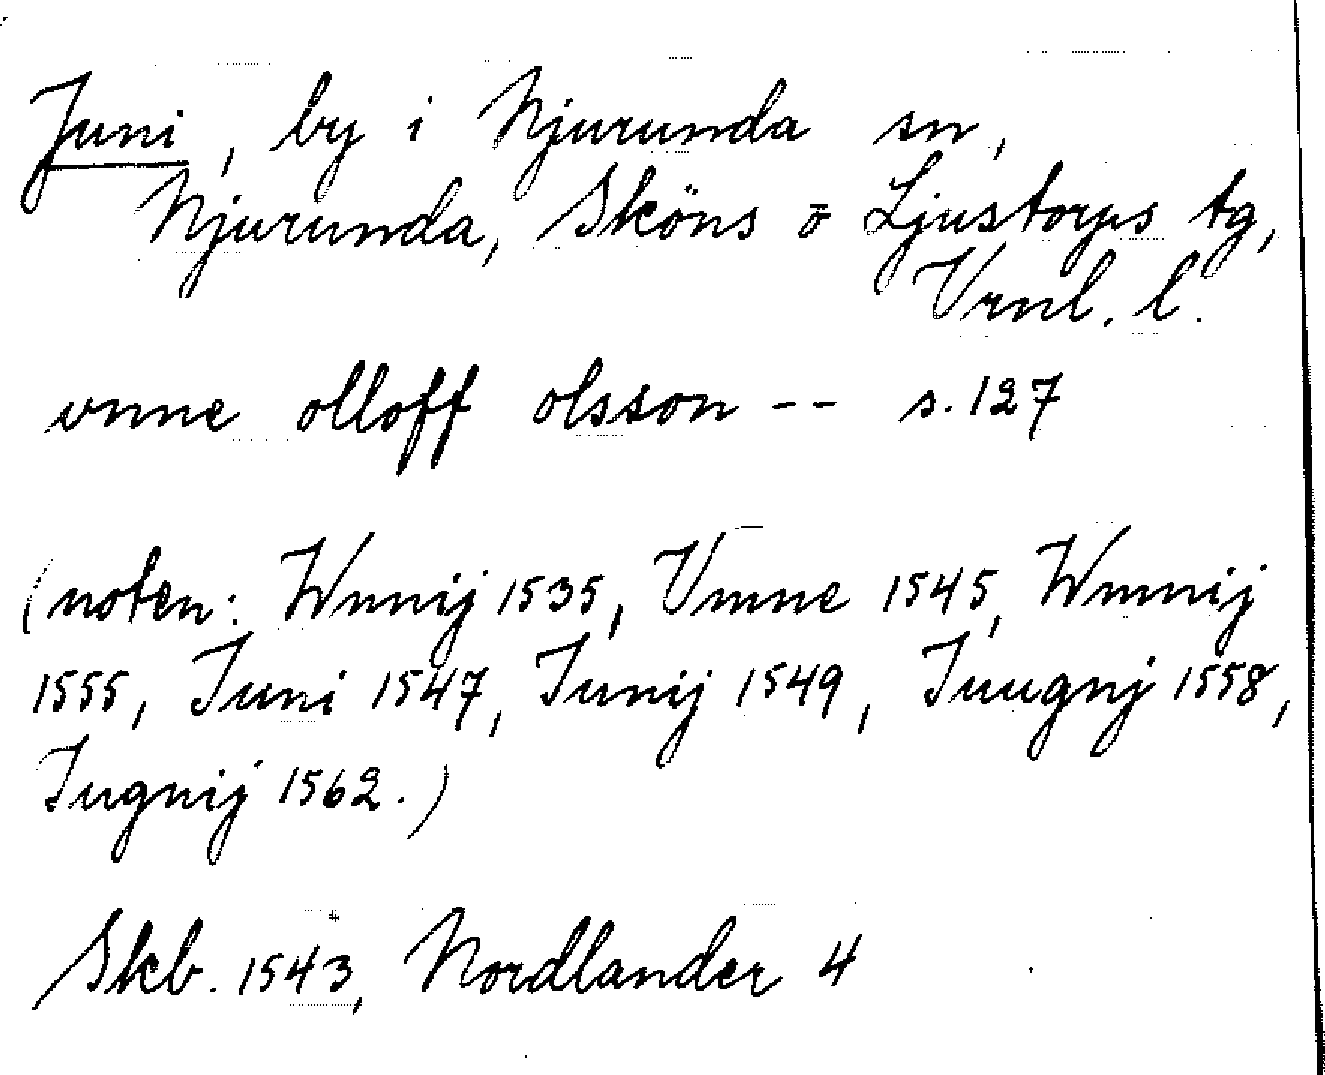 Juni, by i Njurunda sn,
Njurunda, Sköns o Ljustorps tg,
Vrnl. l.
vnne olloff olsson -- s. 127
(noten: Wnnij 1535, Vnnne 1545, Wnnnij
1555, Juni 1547, Junij 1549, Juugnj 1558,
Jugnij 1562.)
Skb. 1543, Nordlander 4